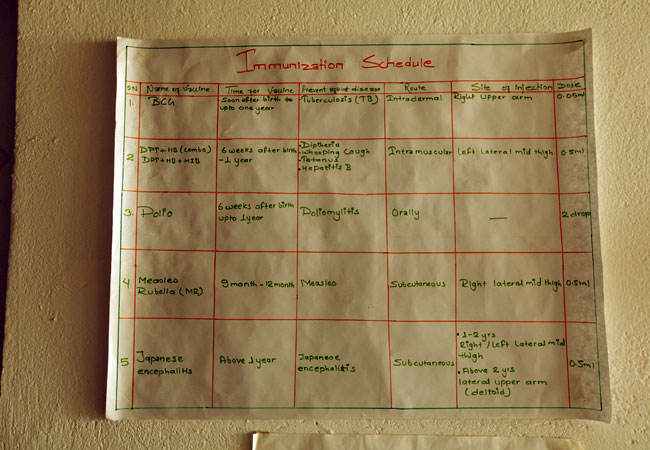 Immunization Schedule
SN Name of Vaccine Time for Vaccine Prevent against disease Route Site of Injection Dose
1. BCG Soon after birth to upto one year Tuberculosis (TB) Intradermal Right upper arm 0.05ml
2 DPT+HB (combo) DPT+HB+HIB 6 weeks after birth -1 year • Diptheria • Whooping Cough • Tetanus • Hepatitis B Intramuscular Left lateral mid thigh 0.5ml
3. Polio 6 weeks after birth upto 1 year Poliomylitis Orally — 2 drop
4 Measles Rubella (MR) 9 month - 12 month Measles Subcutaneous Right lateral mid thigh 0.5ml
5 Japanese encephalitis Above 1 year Japanese encephalitis Subcutaneous • 1-2 yrs Right/Left Lateral mid thigh • Above 2 yrs lateral upper arm (deltoid) 0.5ml